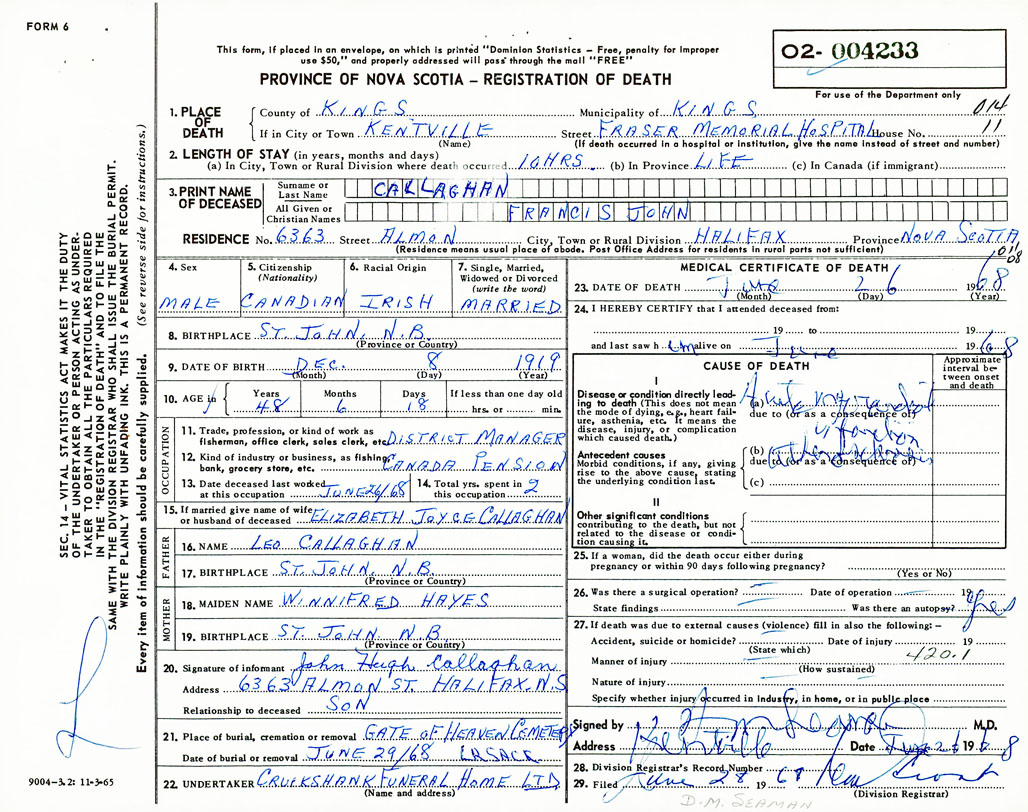 FORM 6
This form, if placed in an envelope, on which is printed "Dominion Statistics – Free, penalty for improper
use $50," and properly addressed will pass through the mail "FREE"
PROVINCE OF NOVA SCOTIA – REGISTRATION OF DEATH
02- 004233
For use of the Department only
1. PLACE OF DEATH
County of KINGS Municipality of KINGS 014
If in City or Town KENTVILLE Street FRASER MEMORIAL HOSPITAL House No. 11
(Name) (If death occurred in a hospital or institution, give the name instead of street and number)
2. LENGTH OF STAY (in years, months and days)
(a) In City, Town or Rural Division where death occurred 10HRS (b) In Province LIFE (c) In Canada (if immigrant)
3. PRINT NAME OF DECEASED
Surname or Last Name CALLAGHAN
All Given or Christian Names FRANCIS JOHN
RESIDENCE No. 6363 Street ALMON City, Town or Rural Division HALIFAX Province NOVA SCOTIA
(Residence means usual place of abode. Post Office Address for residents in rural parts not sufficient)
011
08
4. Sex
MALE
5. Citizenship
(Nationality)
CANADIAN
6. Racial Origin
IRISH
7. Single, Married,
Widowed or Divorced
(write the word)
MARRIED
8. BIRTHPLACE ST. JOHN, N.B.
(Province or Country)
9. DATE OF BIRTH DEC. 8 1919
(Month) (Day) (Year)
10. AGE in
Years Months Days If less than one day old
48 6 18 hrs. or min.
OCCUPATION
11. Trade, profession, or kind of work as
fisherman, office clerk, sales clerk, etc. DISTRICT MANAGER
12. Kind of industry or business, as fishing,
bank, grocery store, etc. CANADA PENSION
13. Date deceased last worked
at this occupation JUNE 26/68
14. Total yrs. spent in
this occupation 2
15. If married give name of wife
or husband of deceased ELIZABETH JOYCE CALLAGHAN
FATHER
16. NAME LEO CALLAGHAN
17. BIRTHPLACE ST. JOHN, N.B.
(Province or Country)
MOTHER
18. MAIDEN NAME WINNIFRED HAYES
19. BIRTHPLACE ST. JOHN. N.B.
(Province or Country)
20. Signature of informant John Hugh Callaghan
Address 6363 ALMON ST. HALIFAX. N.S
Relationship to deceased SON
21. Place of burial, cremation or removal GATE OF HEAVEN CEMETERY
Date of burial or removal JUNE 29/68
22. UNDERTAKER CRUIKSHANK FUNERAL HOME LTD.
(Name and address)
MEDICAL CERTIFICATE OF DEATH
23. DATE OF DEATH June 26 1968
(Month) (Day) (Year)
24. I HEREBY CERTIFY that I attended deceased from:
19 to 19
and last saw him alive on June 1968
CAUSE OF DEATH
Approximate
interval be-
tween onset
and death
I
Disease or condition directly lead-
ing to death (This does not mean
the mode of dying, e.g., heart fail-
ure, asthenia, etc. It means the
disease, injury, or complication
which caused death.)
(a) Acute myocardial
due to (or as a consequence of)
infarction
Antecedent causes
Morbid conditions, if any, giving
rise to the above cause, stating
the underlying condition last.
(b)
due to (or as a consequence of)
(c)
II
Other significant conditions
contributing to the death, but not
related to the disease or condi-
tion causing it.
25. If a woman, did the death occur either during
pregnancy or within 90 days following pregnancy?
(Yes or No)
26. Was there a surgical operation? Date of operation 19
State findings Was there an autopsy? yes
27. If death was due to external causes (violence) fill in also the following: –
Accident, suicide or homicide? Date of injury 19
(State which) 420.1
Manner of injury
(How sustained)
Nature of injury
Specify whether injury occurred in Industry, in home, or in public place
Signed by M.D.
Address Kentville Date June 26 1968
28. Division Registrar's Record Number
29. Filed June 28 68
(Division Registrar)
D.M. SEAMAN
SEC. 14 – VITAL STATISTICS ACT MAKES IT THE DUTY
OF THE UNDERTAKER OR PERSON ACTING AS UNDER-
TAKER TO OBTAIN ALL THE PARTICULARS REQUIRED
IN THE "REGISTRATION OF DEATH" AND TO FILE THE
SAME WITH THE DIVISION REGISTRAR WHO SHALL ISSUE THE BURIAL PERMIT.
WRITE PLAINLY WITH UNFADING INK. THIS IS A PERMANENT RECORD.
Every item of information should be carefully supplied. (See reverse side for instructions.)
9004-3.2: 11-3-65